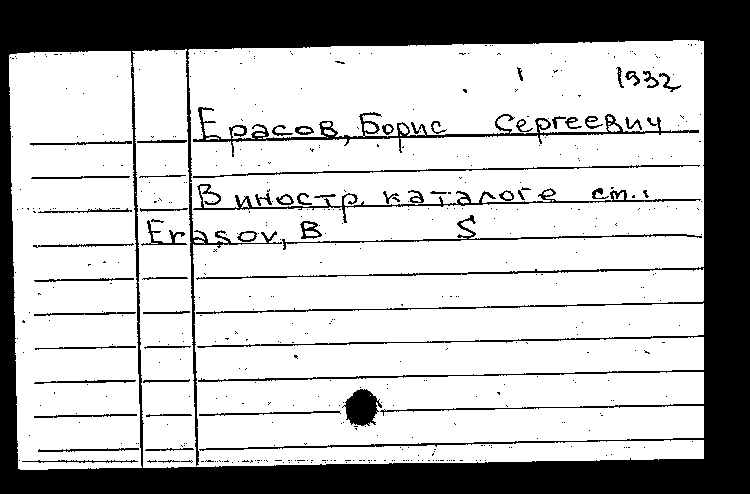 1932
Ерасов, Борис Сергеевич
В иностр. каталоге см.:
Erasov, B S